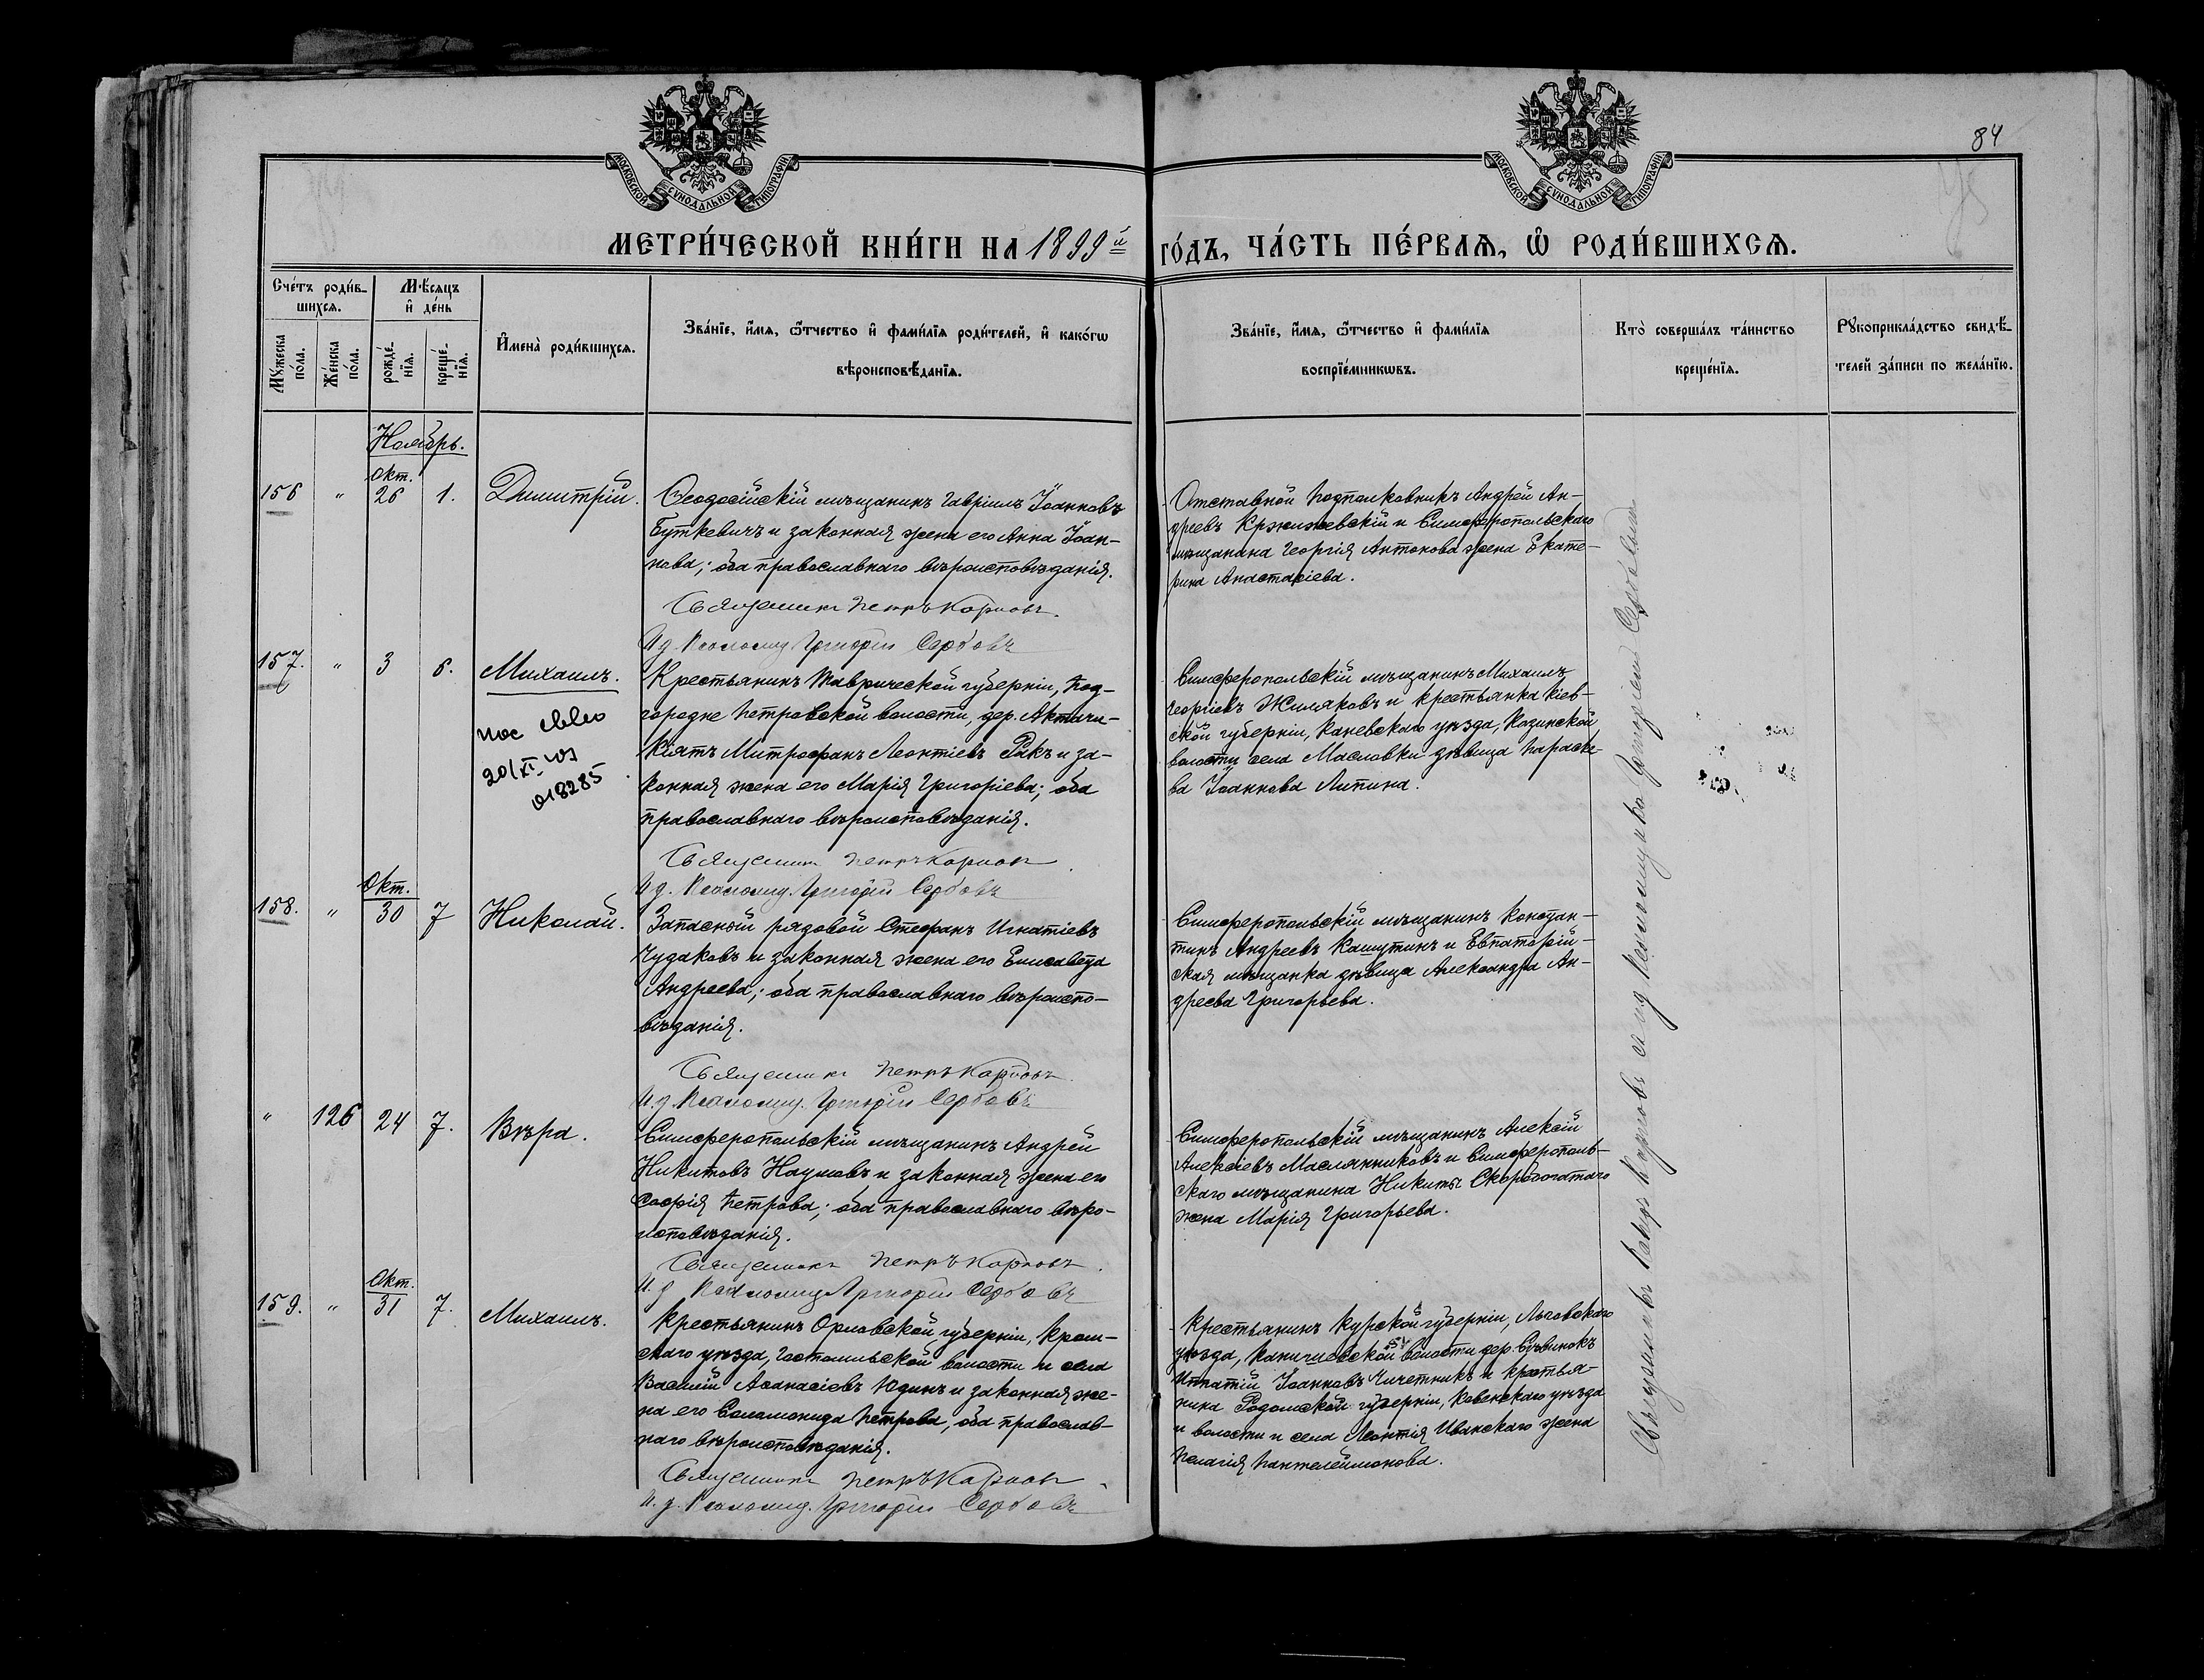 84
МОСКОВСКОЙ СУНОДАЛЬНОЙ ТИПОГРАФІИ
МОСКОВСКОЙ СУНОДАЛЬНОЙ ТИПОГРАФІИ
МЕТРИ́ЧЕСКОЙ КНИ́ГИ НА 1899й ГО́ДЪ, ЧА́СТЬ ПЕ́РВАѦ, Ѡ҆ РОДИ́ВШИХСѦ.
Сче́тъ роди́в-
шихсѧ.
Мѣ́сяцъ
и҆ де́нь
Му́жеска по́ла.
Же́нска по́ла.
рожде́нїѧ.
креще́нїѧ.
И҆мена̀ роди́вшихсѧ.
Зва́нїе, и҆́мѧ, ѻ҆́тчество и҆ фами́лїѧ роди́телей, и҆ како́гѡ
вѣроисповѣ́данїѧ.
Зва́нїе, и҆́мѧ, ѻ҆́тчество и҆ фами́лїѧ
воспрїе́мникѡвъ.
Кто̀ соверша́лъ та́инство
креще́нїѧ.
Рꙋкоприкла́дство свидѣ́-
телей за́писи по жела́нїю.
Ноябрь.
Окт.
156 " 26 1. Димитрій.
Ѳеодосійскій мѣщанинъ Гавріилъ Іоанновъ
Буткевичъ и законная жена его Анна Іоан-
нова; оба православнаго вѣроисповѣданія.
Священникъ Петръ Карповъ.
И. д. Псаломщ. Григорій Сербовъ
Отставной подполковникъ Андрей Ан-
дреевъ Кржижевскій и Симферопольскаго
мѣщанина Георгія Антонова жена Екате-
рина Анастасіева.
157. " 3 6. Михаилъ.
20/XI
018285
Крестьянинъ Таврической губерніи, Под-
городне Петровской волости, дер. Актачи-
Кіятъ Митрофанъ Леонтіевъ Ракъ и за-
конная жена его Марія Григоріева; оба
православнаго вѣроисповѣданія.
Священникъ Петръ Карповъ
И. д. Псаломщ. Григорій Сербовъ
Симферопольскій мѣщанинъ Михаилъ
Георгіевъ Жиляковъ и крестьянка Кіев-
ской губерніи, Каневскаго уѣзда, Козинской
волости села Масловки дѣвица Параске-
ва Іоаннова Липина.
Окт.
158. " 30 7 Николай.
Запасной рядовой Стефанъ Игнатіевъ
Чудаковъ и законная жена его Елисавета
Андреева; оба православнаго вѣроиспо-
вѣданія.
Священникъ Петръ Карповъ.
И. д. Псаломщ. Григорій Сербовъ
Симферопольскій мѣщанинъ Констан-
тинъ Андреевъ Кашутинъ и Евпаторій-
ская мѣщанка дѣвица Александра Ан-
дреева Григорьева.
" 126 24 7. Вѣра.
Симферопольскій мѣщанинъ Андрей
Никитовъ Наумовъ и законная жена его
Софія Петрова; оба православнаго вѣро-
исповѣданія.
Священникъ Петръ Карповъ.
И. д. Псаломщ. Григорій Сербовъ
Симферопольскій мѣщанинъ Алексій
Алексіевъ Маслянниковъ и Симферополь-
скаго мѣщанина Никиты Скоробогатаго
жена Марія Григорьева.
Окт.
159. " 31 7. Михаилъ.
Крестьянинъ Орловской губерніи, Кром-
скаго уѣзда, Гостомльской волости и села
Василій Аѳанасіевъ Юдинъ и законная же-
на его Соломонида Петрова, оба православ-
наго вѣроисповѣданія.
Священникъ Петръ Карповъ
И. д. Псаломщ. Григорій Сербовъ
Крестьянинъ Курской губерніи, Льговскаго
уѣзда, волости дер.
Ипатій Іоанновъ Чичеткинъ и крестья-
нина губерніи, Ковенскаго уѣзда
и волости и села Леонтія Иванскаго жена
Пелагія Пантелеймонова.
Священникъ Петръ Карповъ съ и. д. Псаломщика Григоріемъ Сербовымъ